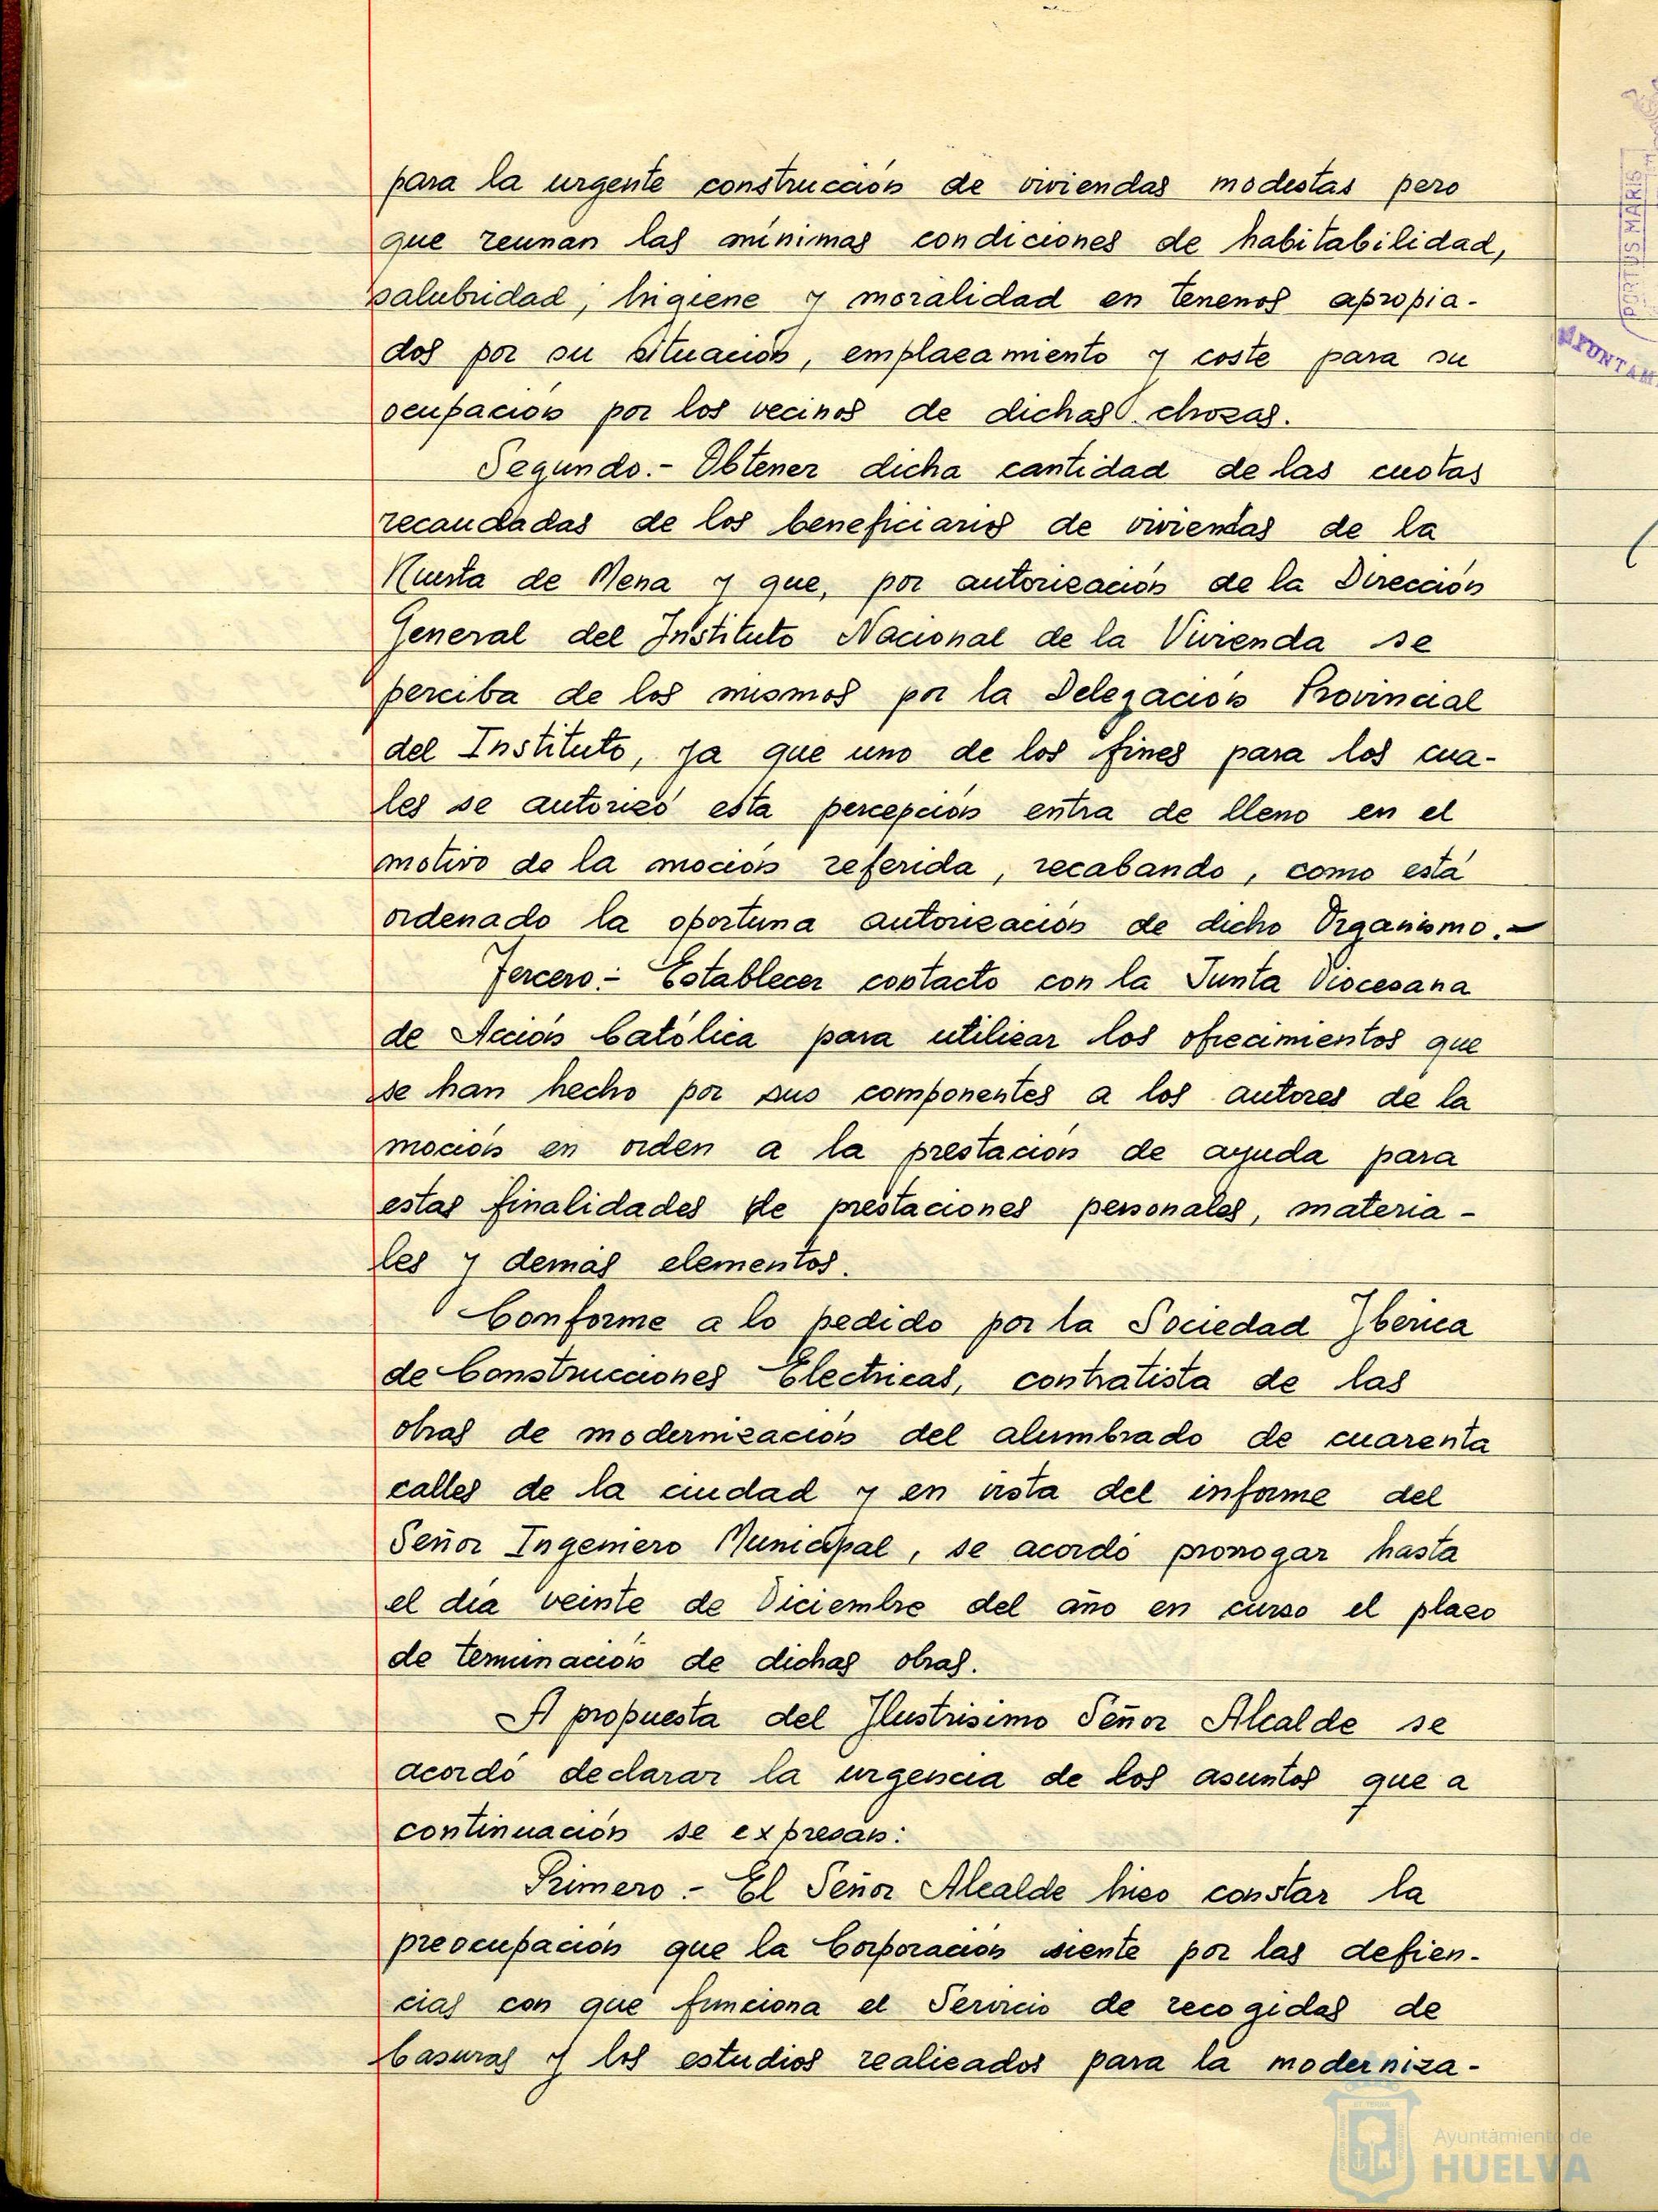 para la urgente construcción de viviendas modestas pero
que reunan las mínimas condiciones de habitabilidad,
salubridad, higiene y moralidad en terrenos apropia-
dos por su situación, emplazamiento y coste para su
ocupación por los vecinos de dichas chozas.
Segundo.- Obtener dicha cantidad de las cuotas
recaudadas de los beneficiarios de viviendas de la
Huerta de Mena y que, por autorización de la Dirección
General del Instituto Nacional de la Vivienda se
perciba de los mismos por la Delegación Provincial
del Instituto, ya que uno de los fines para los cua-
les se autorizó esta percepción entra de lleno en el
motivo de la moción referida, recabando, como está
ordenado la oportuna autorización de dicho Organismo.-
Tercero.- Establecer contacto con la Junta Diocesana
de Acción Católica para utilizar los ofrecimientos que
se han hecho por sus componentes a los autores de la
moción en orden a la prestación de ayuda para
estas finalidades de prestaciones personales, materia-
les y demás elementos.
Conforme a lo pedido por la Sociedad Ibérica
de Construcciones Electricas, contratista de las
obras de modernización del alumbrado de cuarenta
calles de la ciudad y en vista del informe del
Señor Ingeniero Municipal, se acordó prorrogar hasta
el día veinte de Diciembre del año en curso el plazo
de terminación de dichas obras.
A propuesta del Ilustrisimo Señor Alcalde se
acordó declarar la urgencia de los asuntos que a
continuación se expresan:
Primero.- El Señor Alcalde hizo constar la
preocupación que la Corporación siente por las defien-
cias con que funciona el Servicio de recogidas de
basuras y los estudios realizados para la moderniza-
PORTUS MARIS
AYUNTAM
Ayuntamiento de
HUELVA